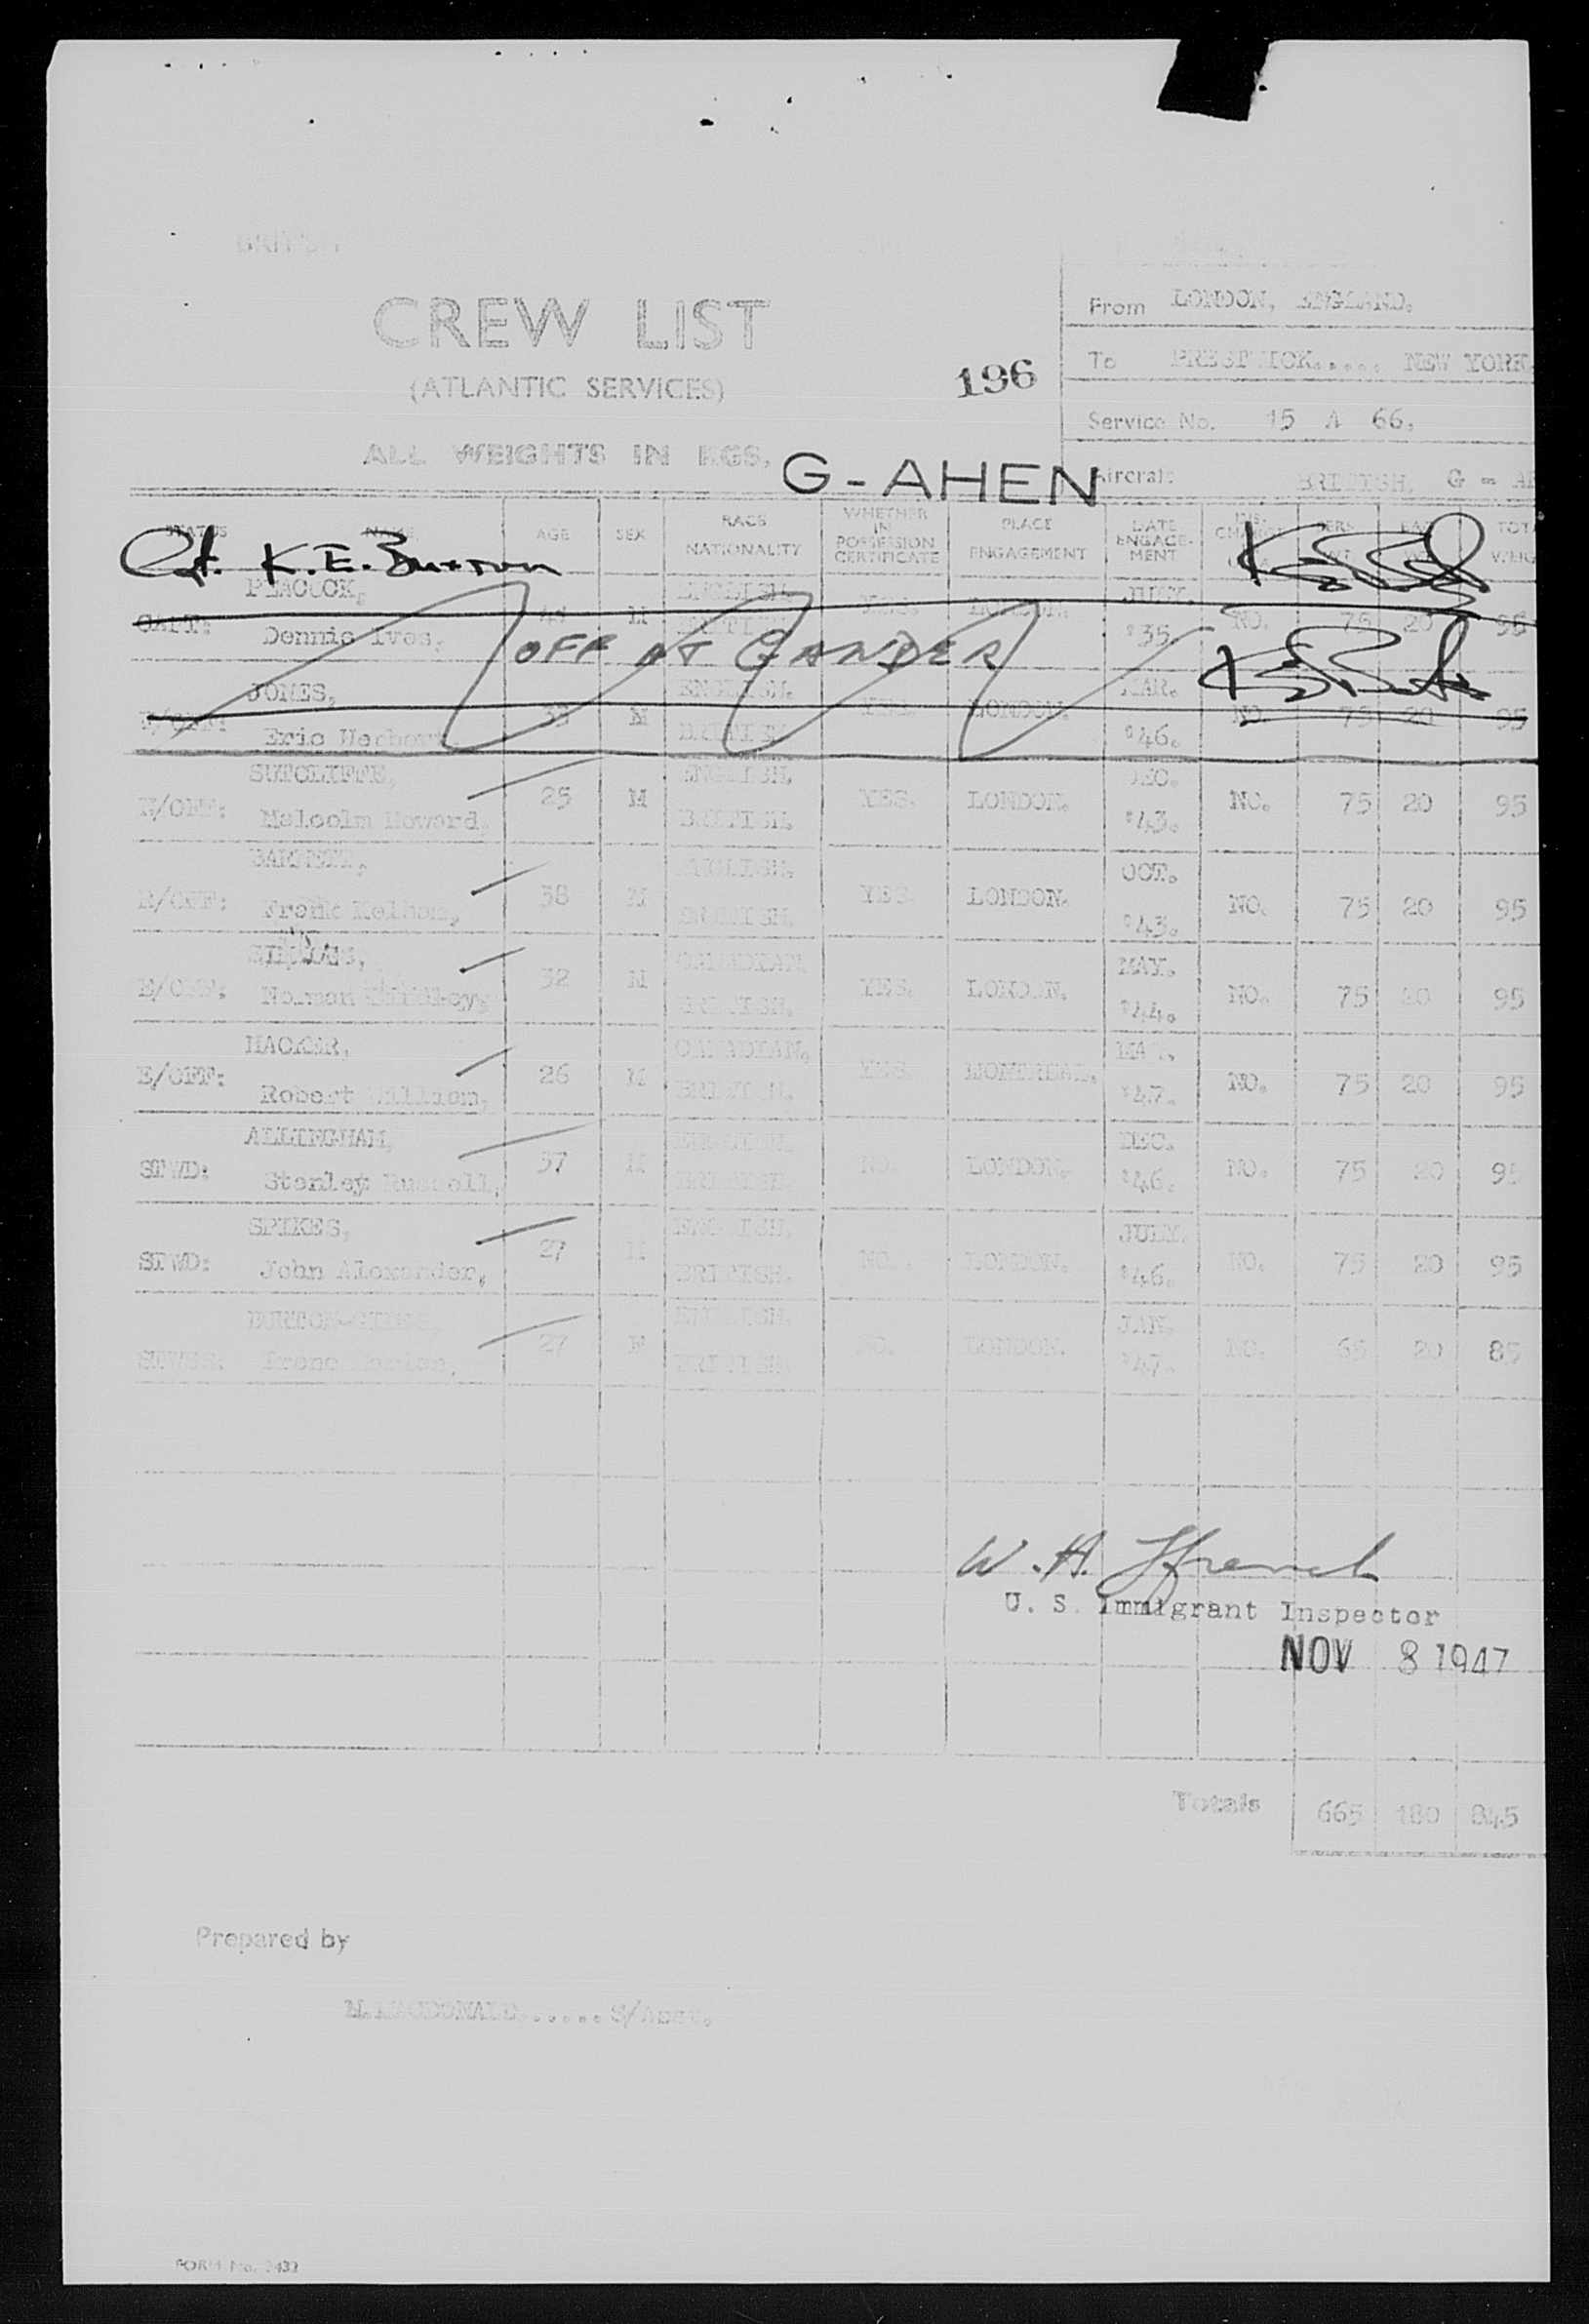 CREW LIST
From LONDON, ENGLAND.
(ATLANTIC SERVICES)
196
To PRESTWICK..... NEW YORK
Service No. 15 A 66.
ALL WEIGHTS IN KGS.
G-AHEN
Aircraft BRITISH. G - AH
STATUS NAME AGE SEX RACE NATIONALITY WHETHER IN POSSESSION CERTIFICATE PLACE ENGAGEMENT DATE ENGAGE-MENT
Cpt. K.E. Buxton
PEACOCK, ENGLISH. JULY.
CAPT: Dennis Ives, M YES. LONDON. '35. NO. 75 20 95
OFF AT GANDER
JONES, ENGLISH. MAR.
Eric 33 M YES. LONDON. '46. NO. 75 20 95
SUTCLIFFE, ENGLISH. DEC.
Malcolm Howard. 25 M BRITISH. YES. LONDON. '43. NO. 75 20 95
ENGLISH. OCT.
Frank 38 M BRITISH. YES. LONDON. '43. NO. 75 20 95
CANADIAN. MAY.
Norman 32 M BRITISH. YES. LONDON. '44. NO. 75 20 95
HACKER, CANADIAN, MAY.
E/OFF: Robert William, 26 M BRITISH. YES. MONTREAL. '47. NO. 75 20 95
ALLINGHAM, ENGLISH. DEC.
STWD: Stanley Russell, 37 M BRITISH. NO. LONDON. '46. NO. 75 20 95
SPIKES, ENGLISH. JULY.
STWD: John Alexander, 27 M BRITISH. NO. LONDON. '46. NO. 75 20 95
ENGLISH. JAN.
27 F BRITISH. NO. LONDON. '47. NO. 65 20 85
W. H. Ffrench
U. S. Immigrant Inspector
NOV 8 1947
Totals 665 180 845
Prepared by
MACDONALD..... S/Asst.
FORM No.